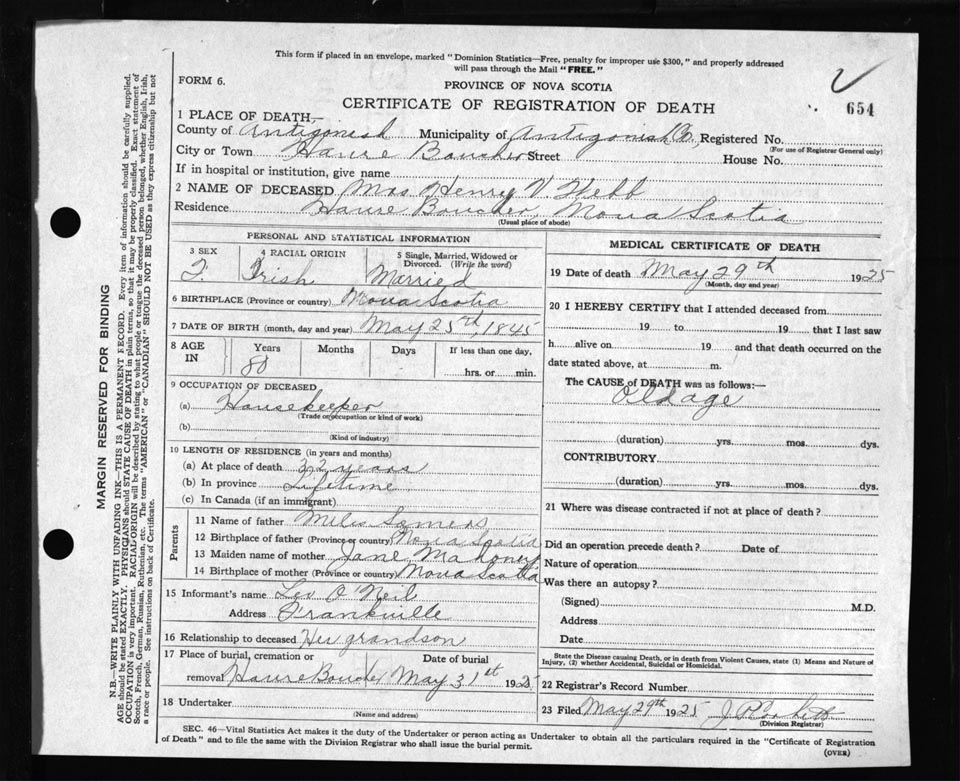 This form if placed in an envelope, marked "Dominion Statistics—Free, penalty for improper use $300," and properly addressed
will pass through the Mail "FREE."
FORM 6.
PROVINCE OF NOVA SCOTIA
CERTIFICATE OF REGISTRATION OF DEATH
654
1 PLACE OF DEATH,—
County of Antigonish Municipality of Antigonish Co, Registered No.
(For use of Registrar General only)
City or Town Havre Boucher Street House No.
If in hospital or institution, give name
2 NAME OF DECEASED Mrs Henry V Webb
Residence Havre Boucher, Nova Scotia
(Usual place of abode)
PERSONAL AND STATISTICAL INFORMATION
3 SEX 4 RACIAL ORIGIN 5 Single, Married, Widowed or
Divorced. (Write the word)
F. Irish Married
6 BIRTHPLACE (Province or country) Nova Scotia
7 DATE OF BIRTH (month, day and year) May 25th, 1845
8 AGE IN Years Months Days If less than one day,
80 hrs. or min.
9 OCCUPATION OF DECEASED
(a) Housekeeper
(Trade or occupation or kind of work)
(b)
(Kind of industry)
10 LENGTH OF RESIDENCE (in years and months)
(a) At place of death years
(b) In province Lifetime
(c) In Canada (if an immigrant)
Parents
11 Name of father Miles Somers
12 Birthplace of father (Province or country) Nova Scotia
13 Maiden name of mother Jane Mahoney
14 Birthplace of mother (Province or country) Nova Scotia
15 Informant's name Leo O'Neil
Address Frankville
16 Relationship to deceased Her grandson
17 Place of burial, cremation or Date of burial
removal Havre Boucher May 31st 1925
18 Undertaker
(Name and address)
MEDICAL CERTIFICATE OF DEATH
19 Date of death May 29th 1925
(Month, day and year)
20 I HEREBY CERTIFY that I attended deceased from
19 to 19 that I last saw
h alive on 19 and that death occurred on the
date stated above, at m.
The CAUSE of DEATH was as follows:—
Old age
(duration) yrs. mos. dys.
CONTRIBUTORY
(duration) yrs. mos. dys.
21 Where was disease contracted if not at place of death?
Did an operation precede death? Date of
Nature of operation
Was there an autopsy?
(Signed) M.D.
Address
Date
State the Disease causing Death, or in death from Violent Causes, state (1) Means and Nature of
Injury, (2) whether Accidental, Suicidal or Homicidal.
22 Registrar's Record Number
23 Filed May 29th 1925 J. P. Corbett
(Division Registrar)
SEC. 46—Vital Statistics Act makes it the duty of the Undertaker or person acting as Undertaker to obtain all the particulars required in the "Certificate of Registration
of Death" and to file the same with the Division Registrar who shall issue the burial permit.
(OVER)
MARGIN RESERVED FOR BINDING
N.B.—WRITE PLAINLY WITH UNFADING INK—THIS IS A PERMANENT RECORD. Every item of information should be carefully supplied.
AGE should be stated EXACTLY. PHYSICIANS should STATE CAUSE OF DEATH in plain terms, so that it may be properly classified. Exact statement of
OCCUPATION is very important. RACIAL ORIGIN will be described by stating to what people or tongue the deceased person belonged, whether English, Irish,
Scotch, French, German, Russian, Ruthenian, etc. The terms "AMERICAN" or "CANADIAN" SHOULD NOT BE USED as they express citizenship but not
a race or people. See instructions on back of Certificate.